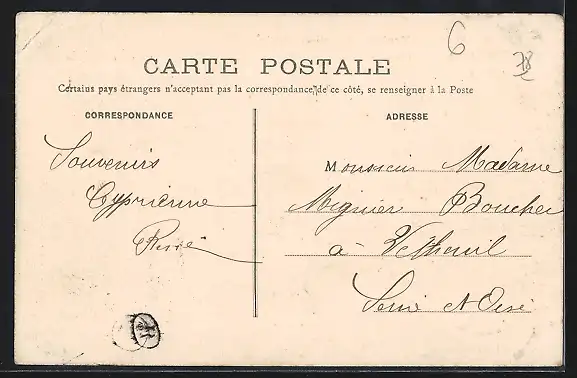 6
78
CARTE POSTALE
Certains pays étrangers n'acceptant pas la correspondance, de ce côté, se renseigner à la Poste
CORRESPONDANCE
ADRESSE
Souvenirs
Cyprienne
Monsieur Madame
Mignier Boucher
à Vetheuil
Seine et Oise